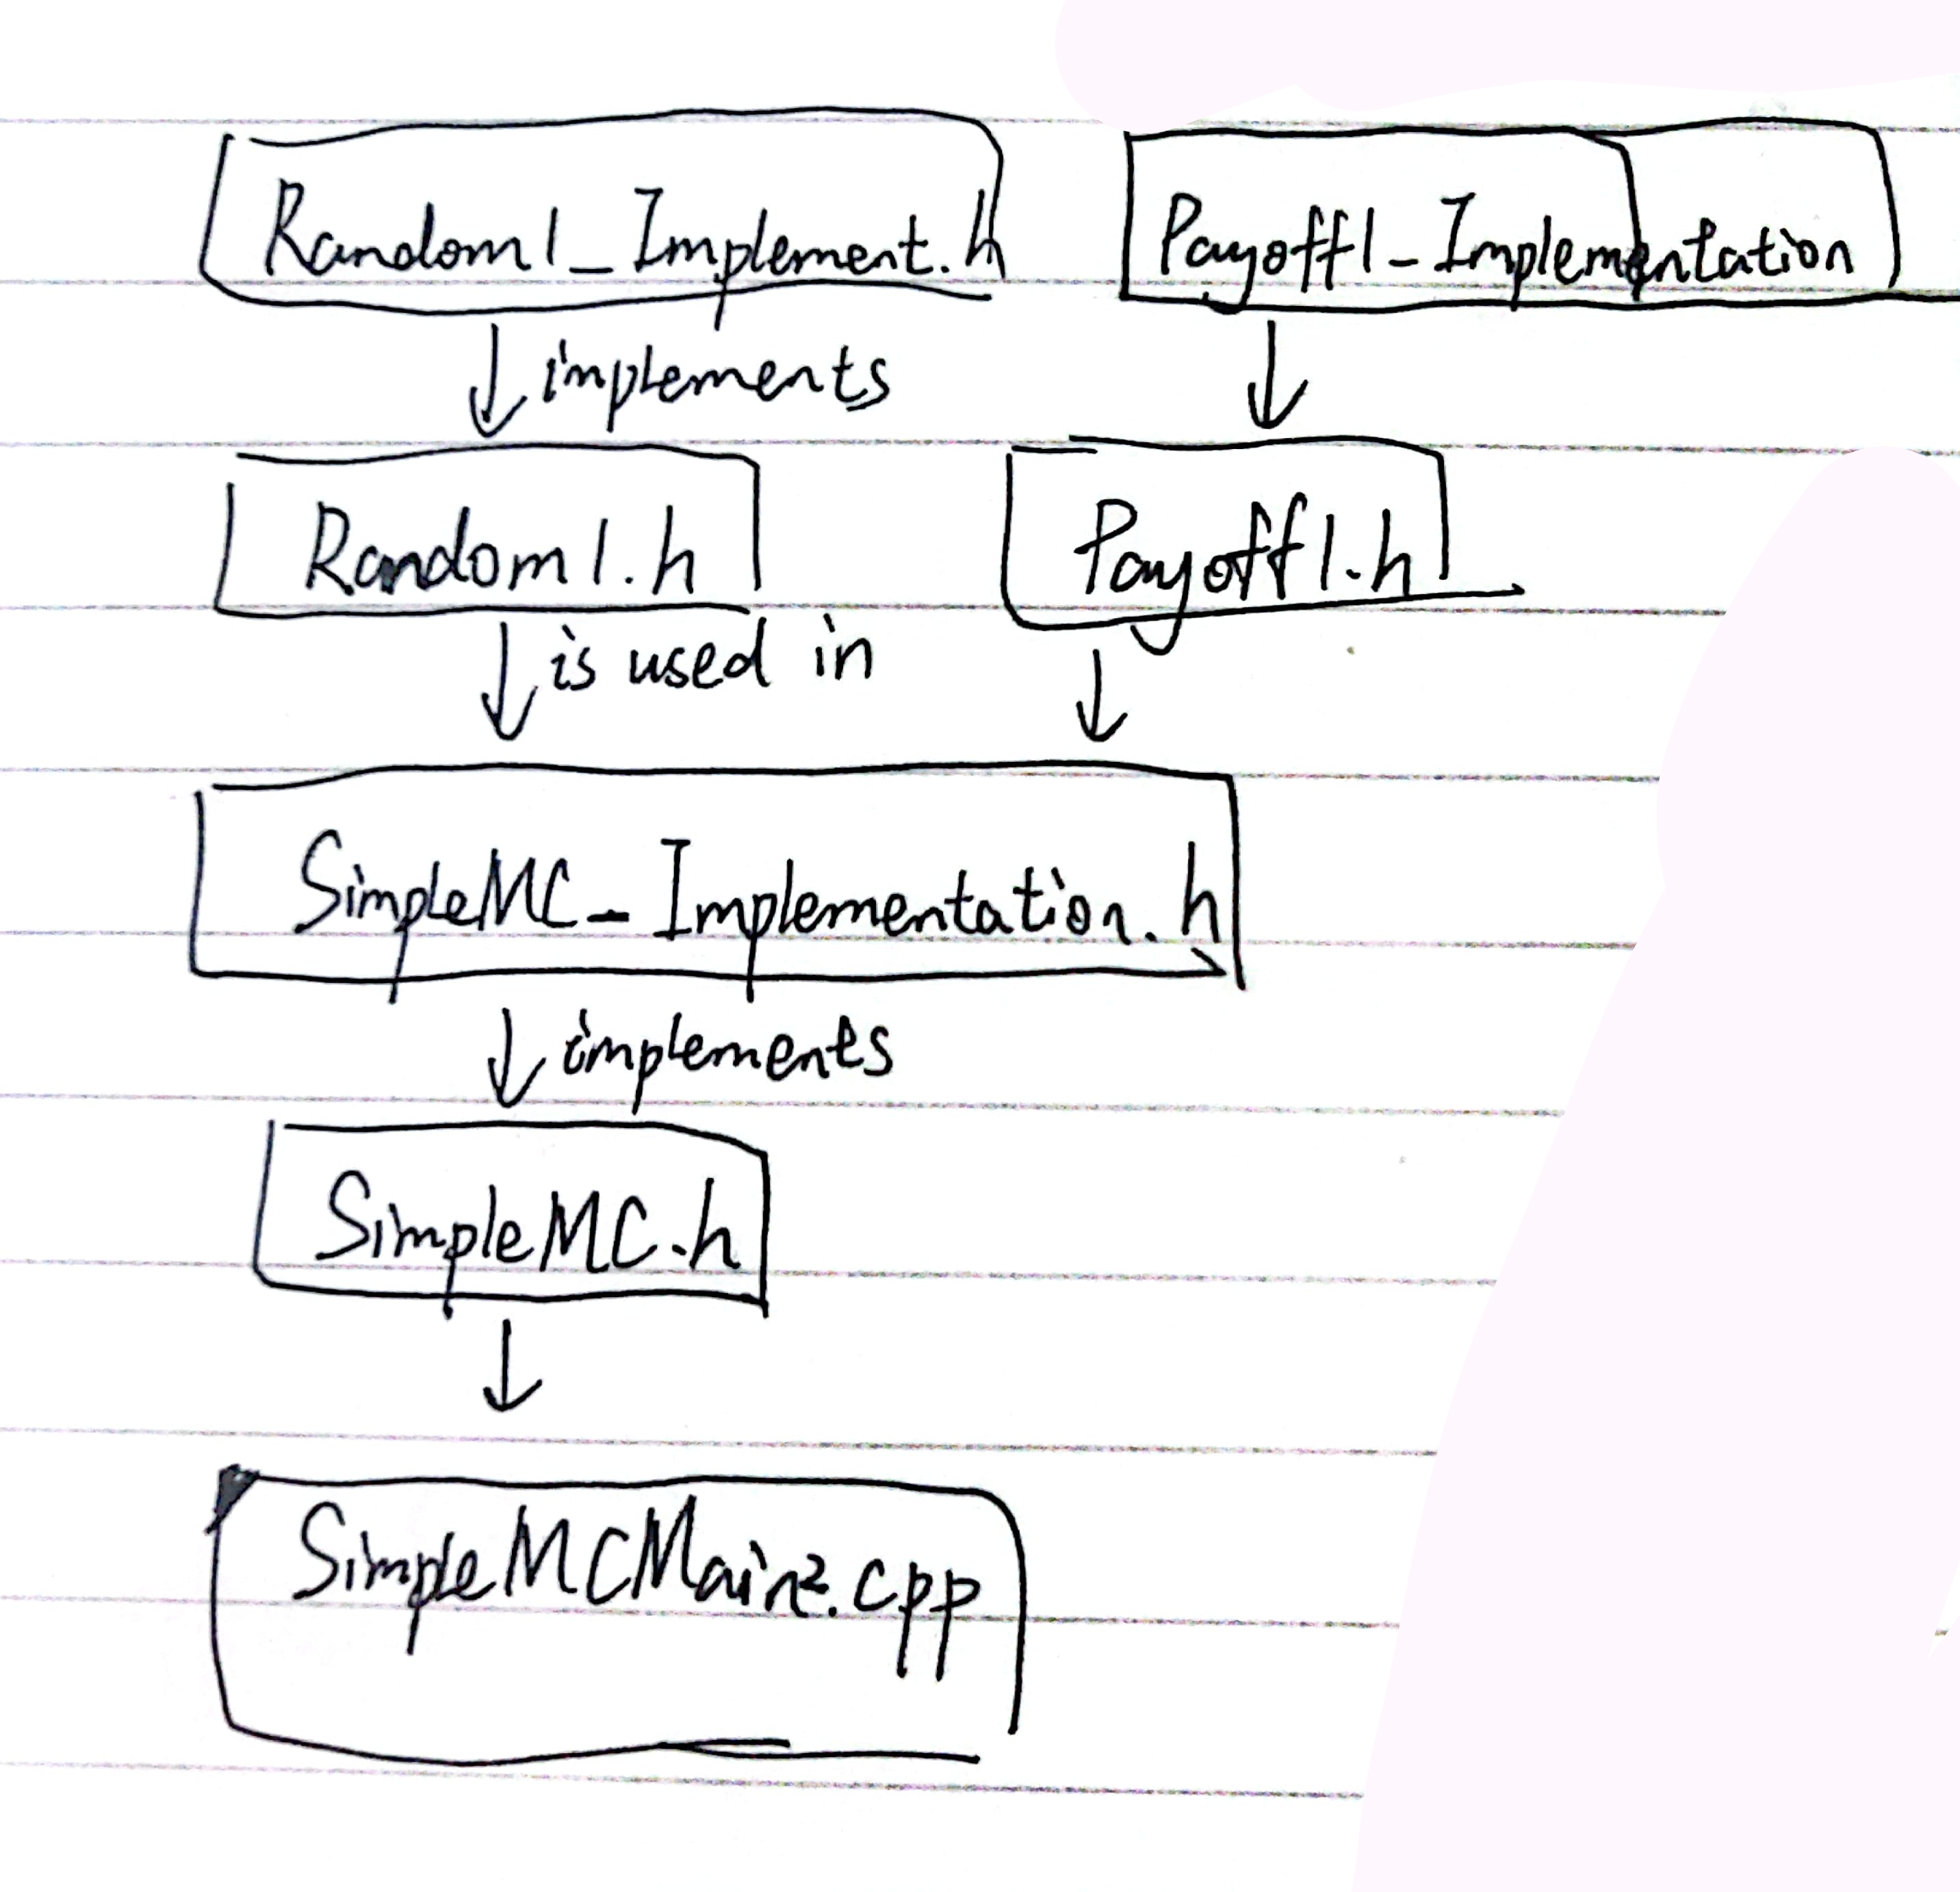 Random1_Implement.h Payoff1_Implementation
implements
Random1.h Payoff1.h
is used in
SimpleMC_Implementation.h
implements
SimpleMC.h
SimpleMCMain2.cpp